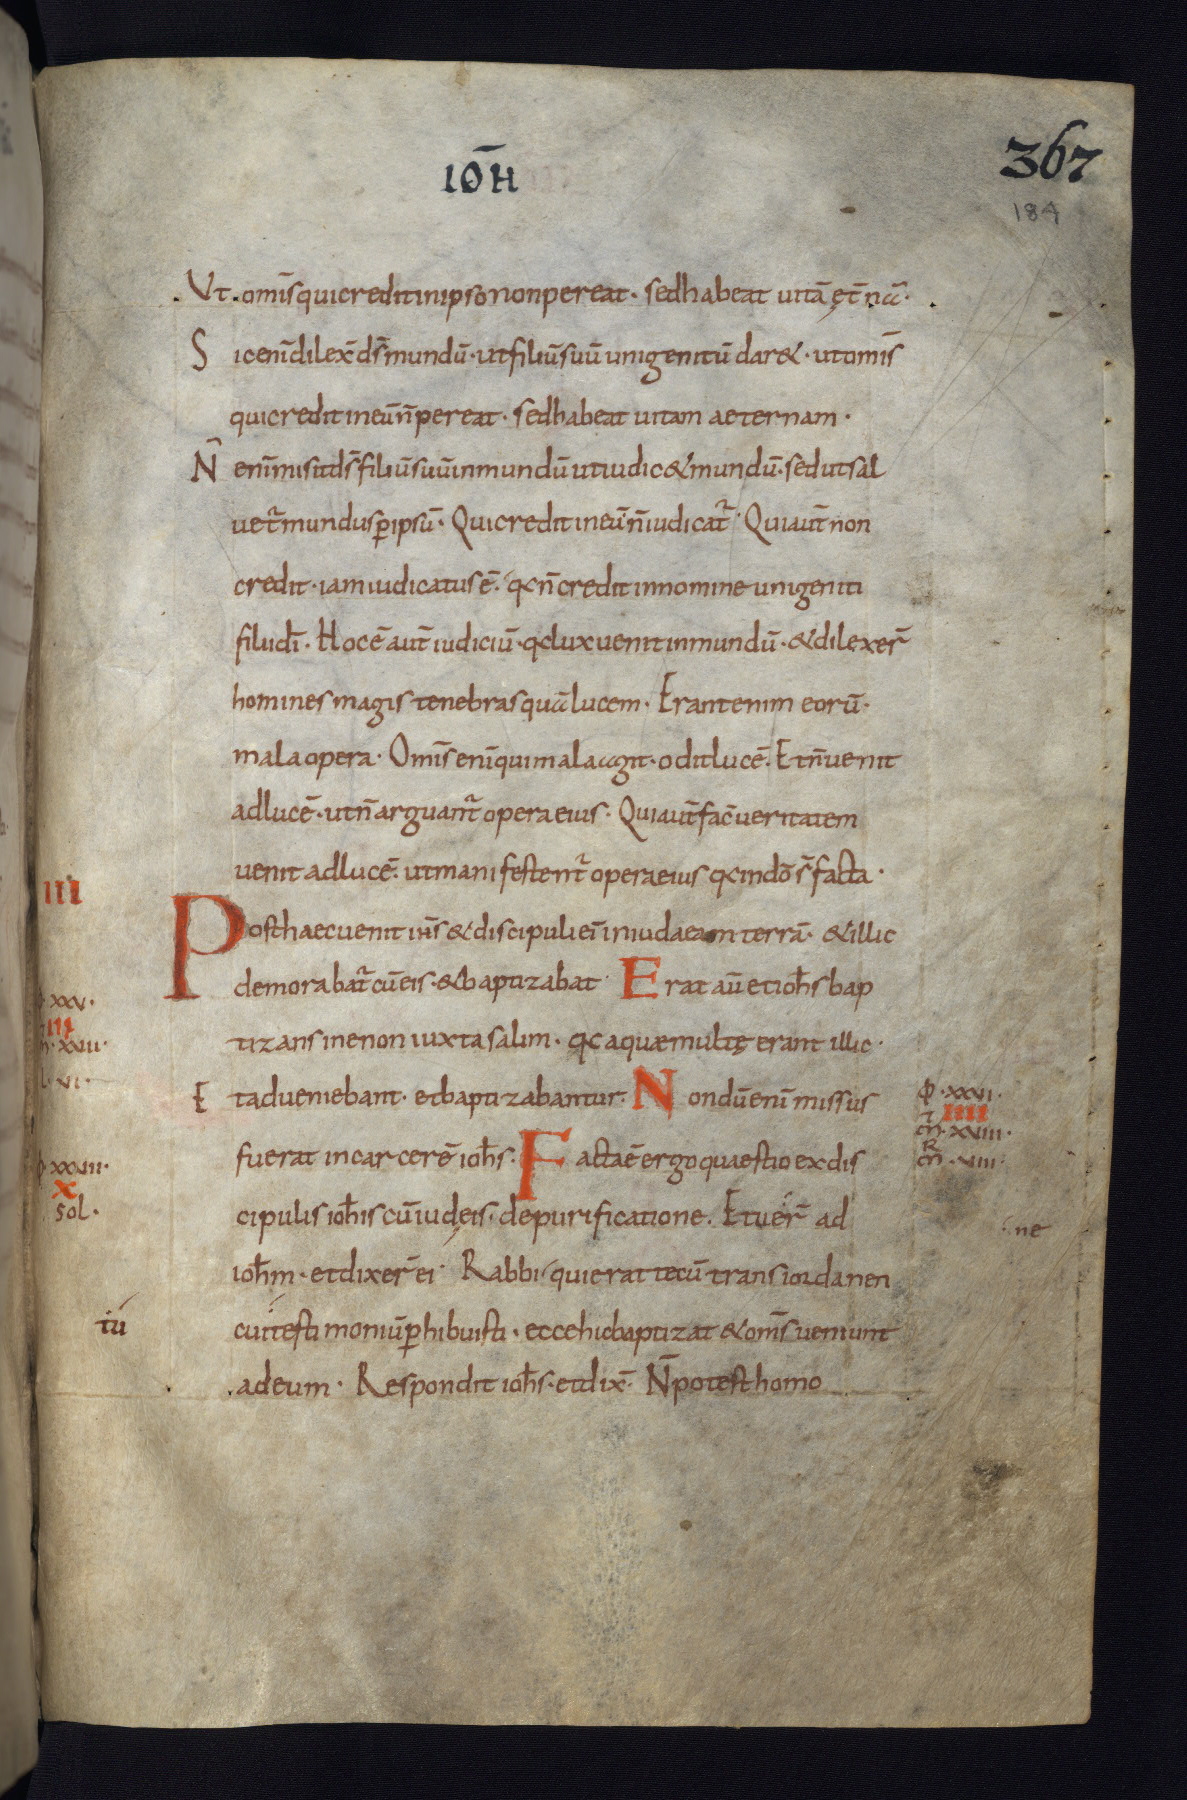 IOH̄
367
184
Ut omīs qui credit in ipso non pereat· sed habeat uitā ęt̄nā·
Sic enī dilex̄ ds̄ mundū· ut filiū suū unigenitū dar&· ut omīs
qui credit in eū n̄ pereat· sed habeat uitam aeternam·
N̄ enī misit ds̄ filiū suū in mundū ut iudic& mundū· sed ut sal
uet̄ mundus ꝑ ipsū· Qui credit in eū n̄ iudicat̄· Qui aut̄ non
credit· iam iudicatus ē· qc n̄ credit in nomine unigeniti
filii dī· Hoc ē aut̄ iudiciū· qc lux uenit in mundū· & dilexer̄
homines magis tenebras quā lucem· Erant enim eorū·
mala opera· Omīs enī qui mala agit· odit lucē· Et n̄ uenit
ad lucē· ut n̄ arguant̄ opera eius· Qui aut̄ fac̄ ueritatem
uenit ad lucē· ut manifestent̄ opera eius qc in dō s̄ facta·
III
Post haec uenit ih̄s & discipuli eī in iudaeam terrā· & illic
demorabat̄ cū eis· & baptizabat· Erat aū et ioh̄s bap
xxv·
III
xxiii·
tizans in enon iuxta salim· qc aquae multę erant illic·
vi·
Et adueniebant· et baptizabantur· Nondū enī missus
·xxvi·
IIII
·xviii·
R
·viiii·
fuerat in carcerē ioh̄s· Facta ē ergo quaestio ex dis
xxvii·
X
sol·
cipulis ioh̄is cū iudęis· de purificatione· Et uēr̄ ad
ne
ioh̄m· et dixer̄ ei· Rabbi qui erat tecū trans iordanen
tū
cui testimoniū ꝑhibuisti· ecce hic baptizat & omīs ueniunt
ad eum· Respondit ioh̄s· et dix̄· N̄ potest homo